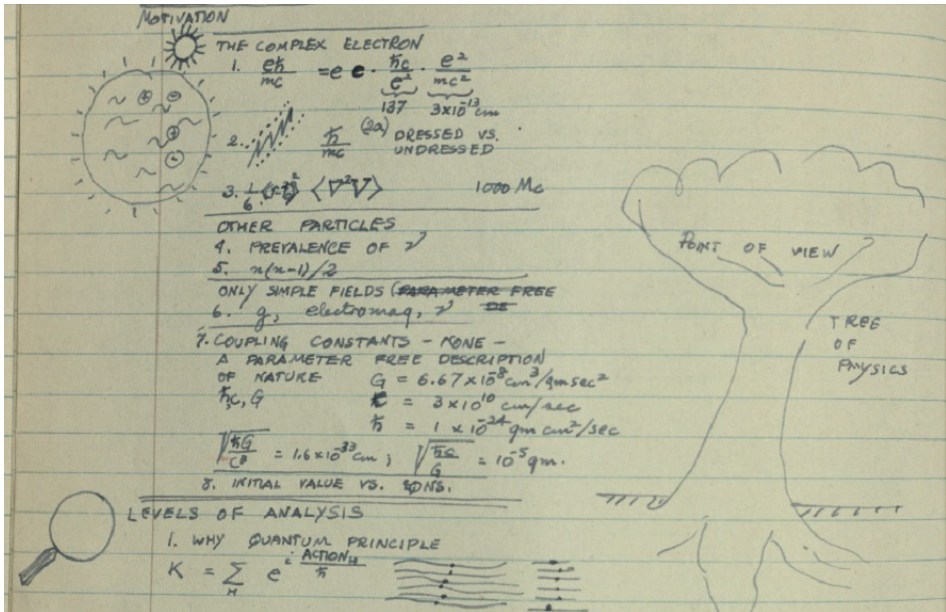 MOTIVATION
THE COMPLEX ELECTRON
1. eħ/mc = e e · ħc/e² · e²/mc²
137 3x10⁻¹³cm
2. ħ/mc (2a) DRESSED VS.
UNDRESSED
3. 1/6 ⟨∇²V⟩ 1000 Mc
OTHER PARTICLES
4. PREVALENCE OF ν
5. n(n-1)/2
ONLY SIMPLE FIELDS (PARAMETER FREE
DE
6. g, electromag, ν
7. COUPLING CONSTANTS - NONE -
A PARAMETER FREE DESCRIPTION
OF NATURE G = 6.67x10⁻⁸cm³/gmsec²
ħ,c,G c = 3x10¹⁰ cm/sec
ħ = 1 x10⁻²⁴gm cm²/sec
√ħG/c³ = 1.6x10⁻³³cm ; √ħc/G = 10⁻⁵gm.
8. INITIAL VALUE VS. EQNS.
LEVELS OF ANALYSIS
1. WHY QUANTUM PRINCIPLE
K = Σ_H e^i ACTION_H/ħ
POINT OF VIEW
TREE
OF
PHYSICS